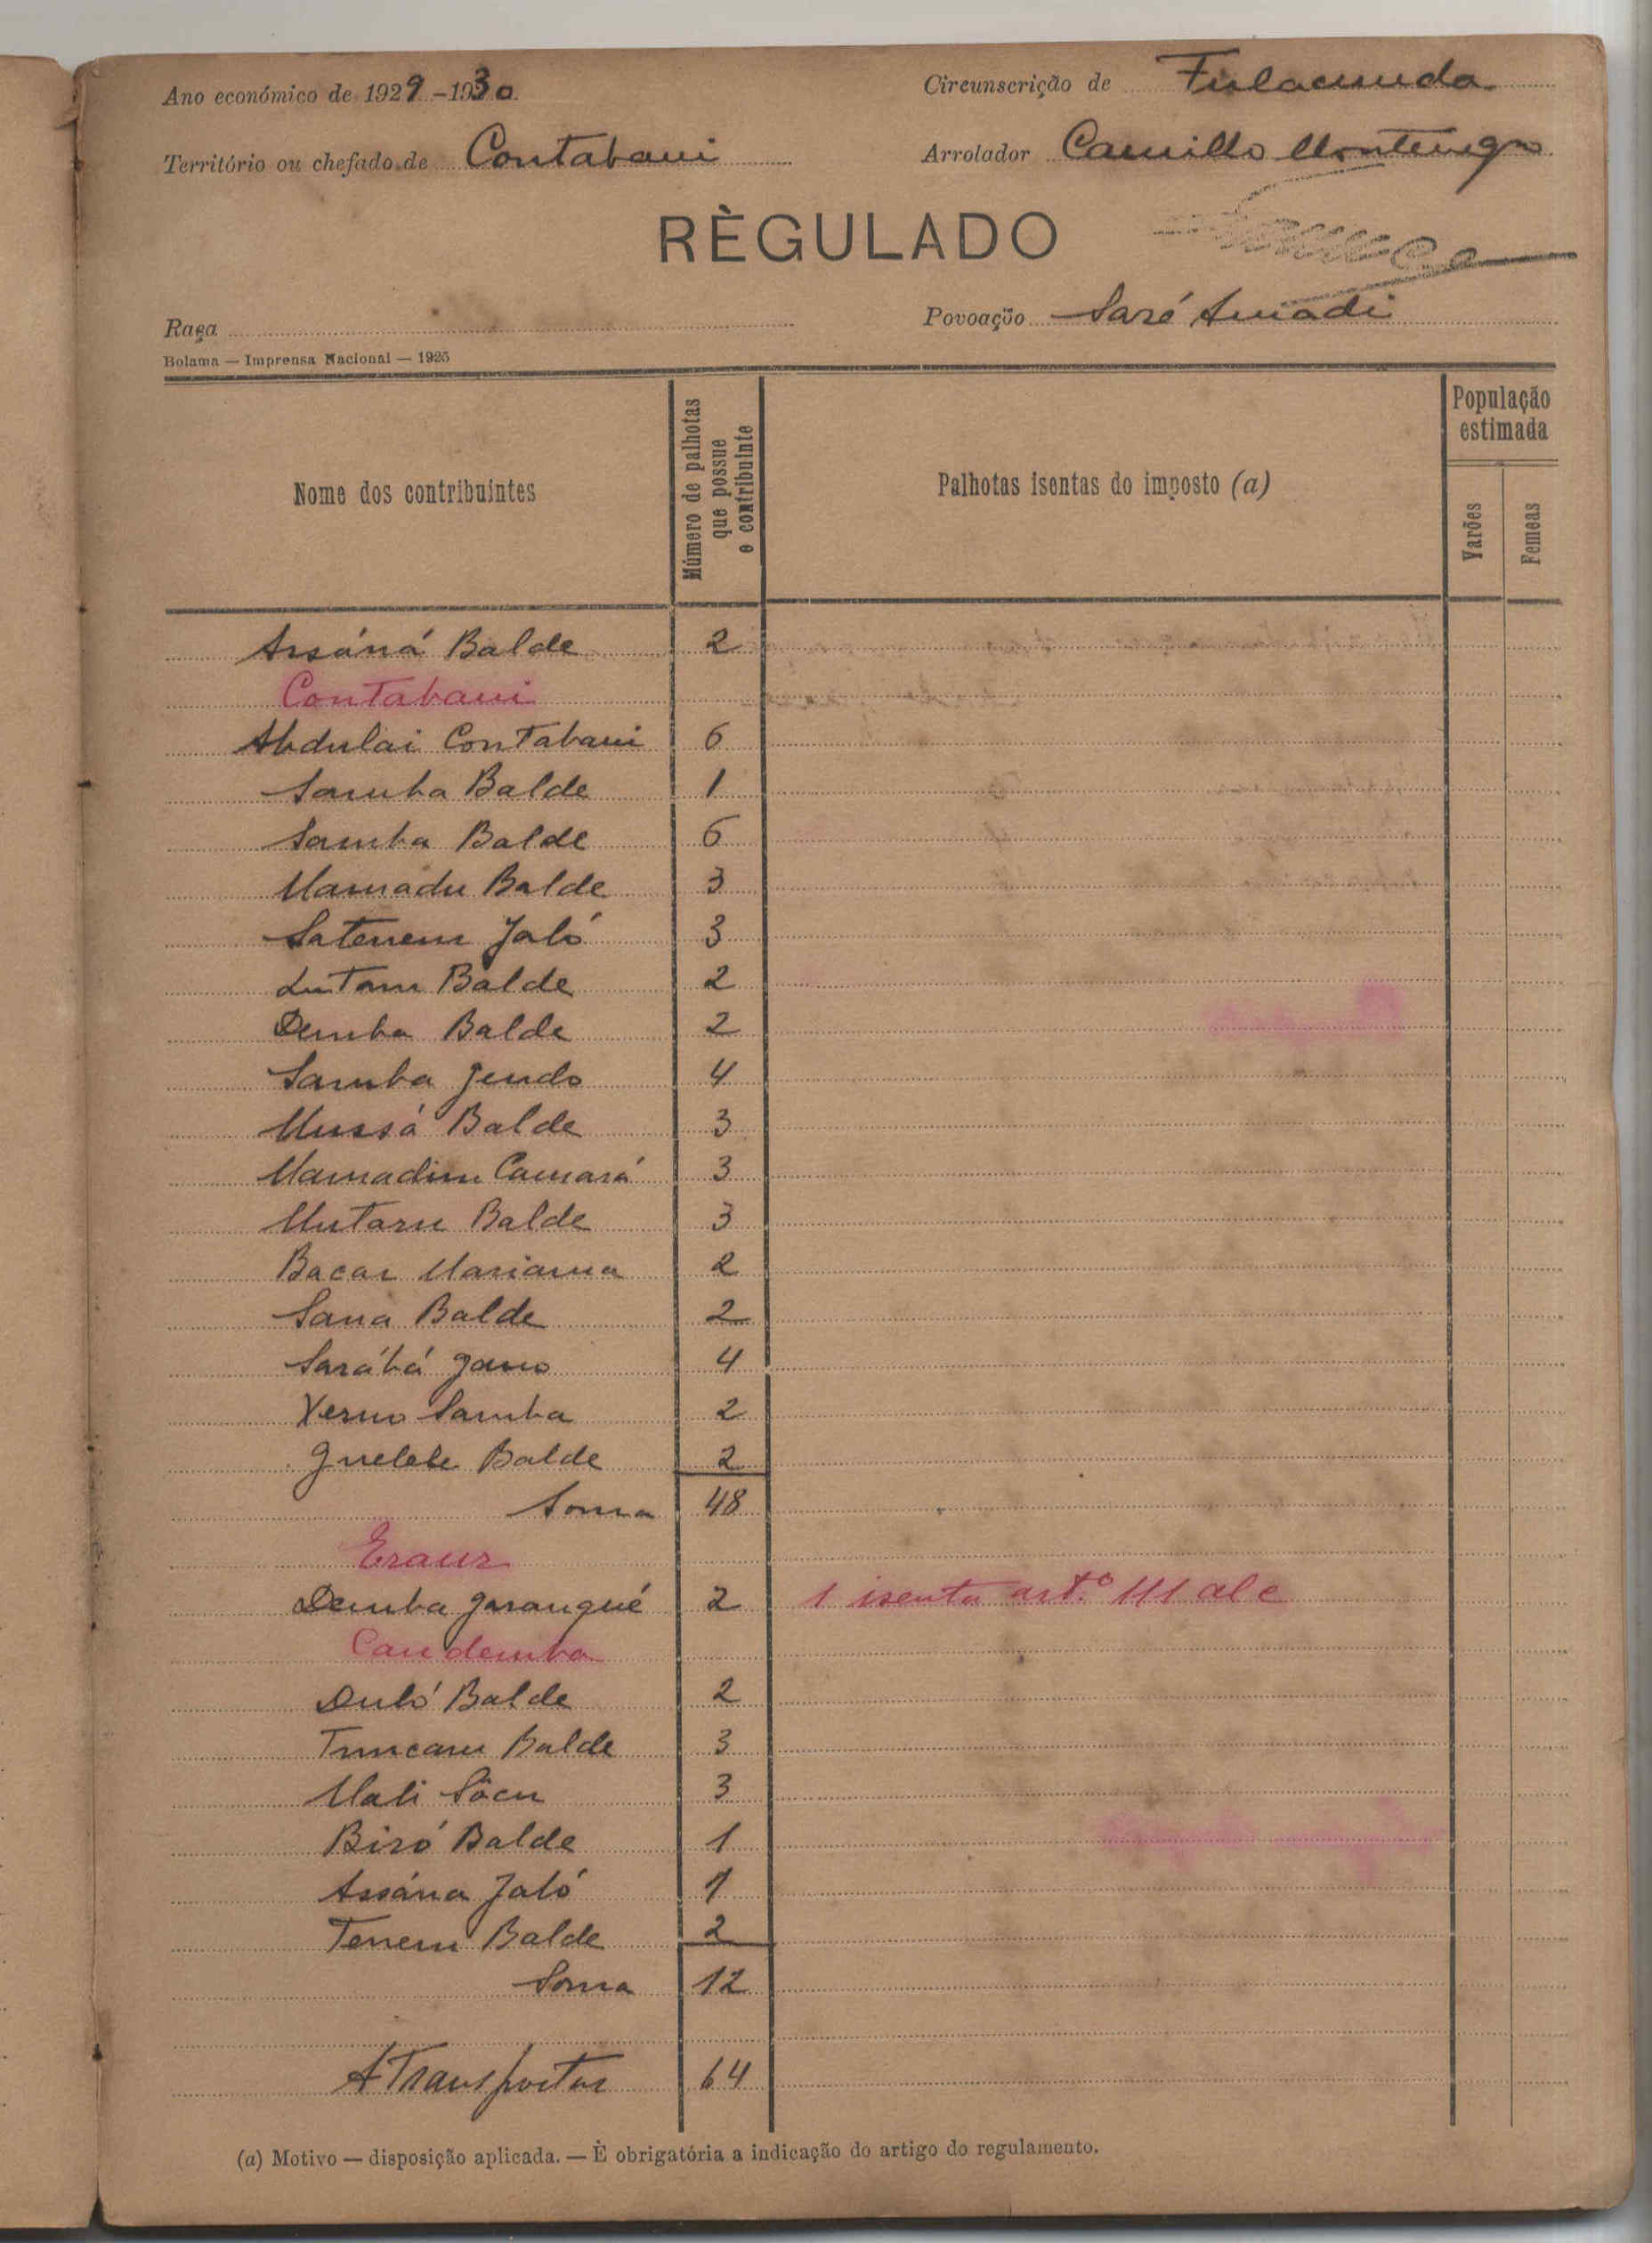 Ano económico de 1929-1930
Circunscrição de Fulacunda
Território ou chefado de Contabani
Arrolador Camillo Montenegro
RÈGULADO
Raça
Povoação Saré Amadi
Bolama — Imprensa Nacional — 1925
Nome dos contribuintes
Número de palhotas que possue o contribuinte
Palhotas isentas do imposto (a)
População estimada
Varões
Femeas
Assáná Balde 2
Contabani
Abdulai Contabani 6
Samba Balde 1
Samba Balde 6
Mamadu Balde 3
Satenem Jaló 3
Balde 2
Demba Balde 2
Samba Jendo 4
Mussá Balde 3
Mamadim Camará 3
Mutaru Balde 3
Bacar Mariama 2
Sana Balde 2
Sarábá Jano 4
Yerno Samba 2
Guelele Balde 2
Soma 48
Eraur
Demba Jarangué 2 1 isenta artº 111 al c
Candemba
Duló Balde 2
Truncaru Balde 3
Mali Sôcu 3
Biró Balde 1
Assána Jaló 1
Tenem Balde 2
Soma 12
A Transportar 64
(a) Motivo — disposição aplicada. — È obrigatória a indicação do artigo do regulamento.